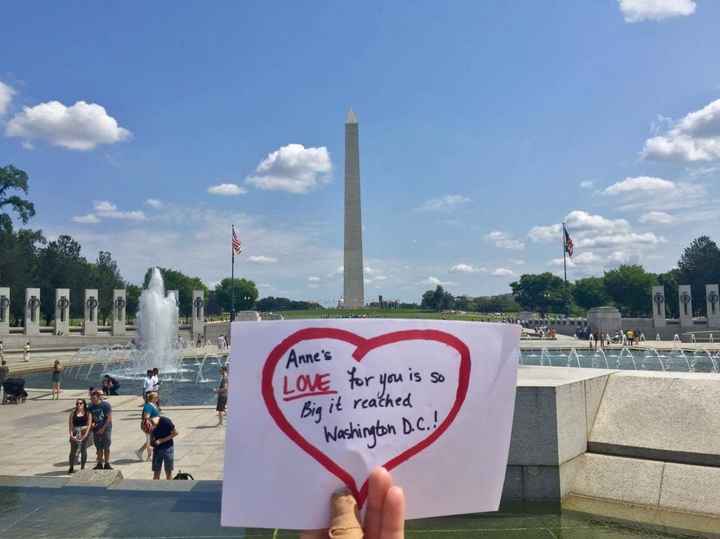 Anne's
LOVE for you is so
Big it reached
Washington D.C.!